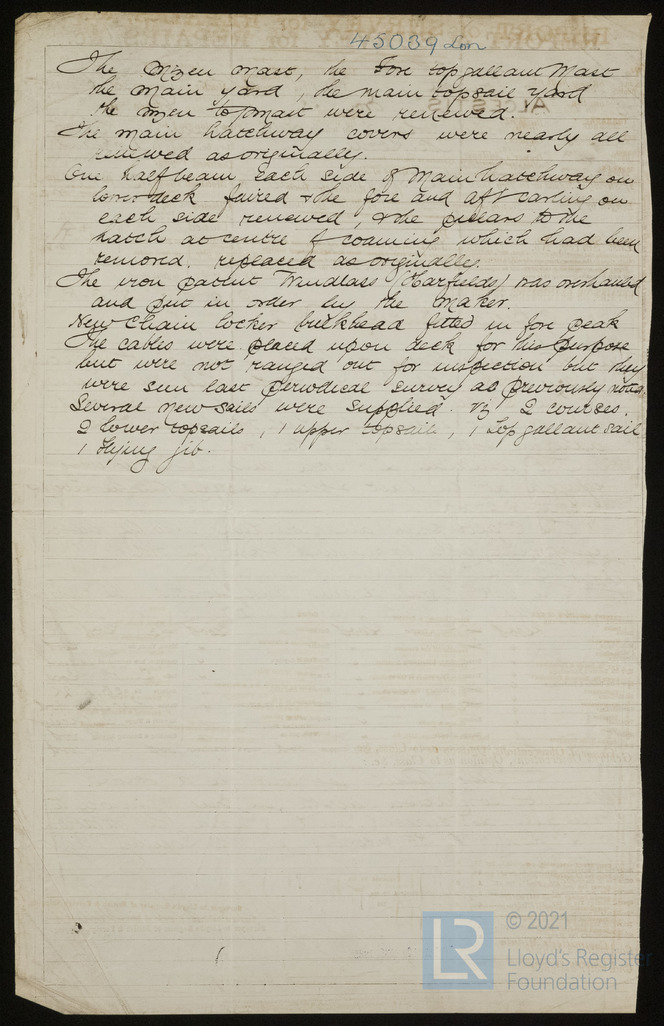 45039 Lon
The Mizen Mast, the Fore topgallant Mast
the main yard, the main topsail yard
the mizen topmast were renewed.
The main hatchway covers were nearly all
renewed as originally.
One half beam each side of Main hatchway on
lower deck faired & the fore and aft carling on
each side renewed, & the pillars to the
hatch at centre of coaming which had been
removed, replaced as originally.
The iron patent Windlass (Harfields) was overhauled
and put in order by the Maker.
New Chain locker bulkhead fitted in fore peak
The cables were placed upon deck for this purpose
but were not ranged out for inspection but they
were seen last periodical survey as previously noted
Several new sails were supplied. viz 2 courses,
2 lower topsails, 1 upper topsail, 1 Topgallant sail
1 Flying jib.
LR
© 2021
Lloyd's Register
Foundation